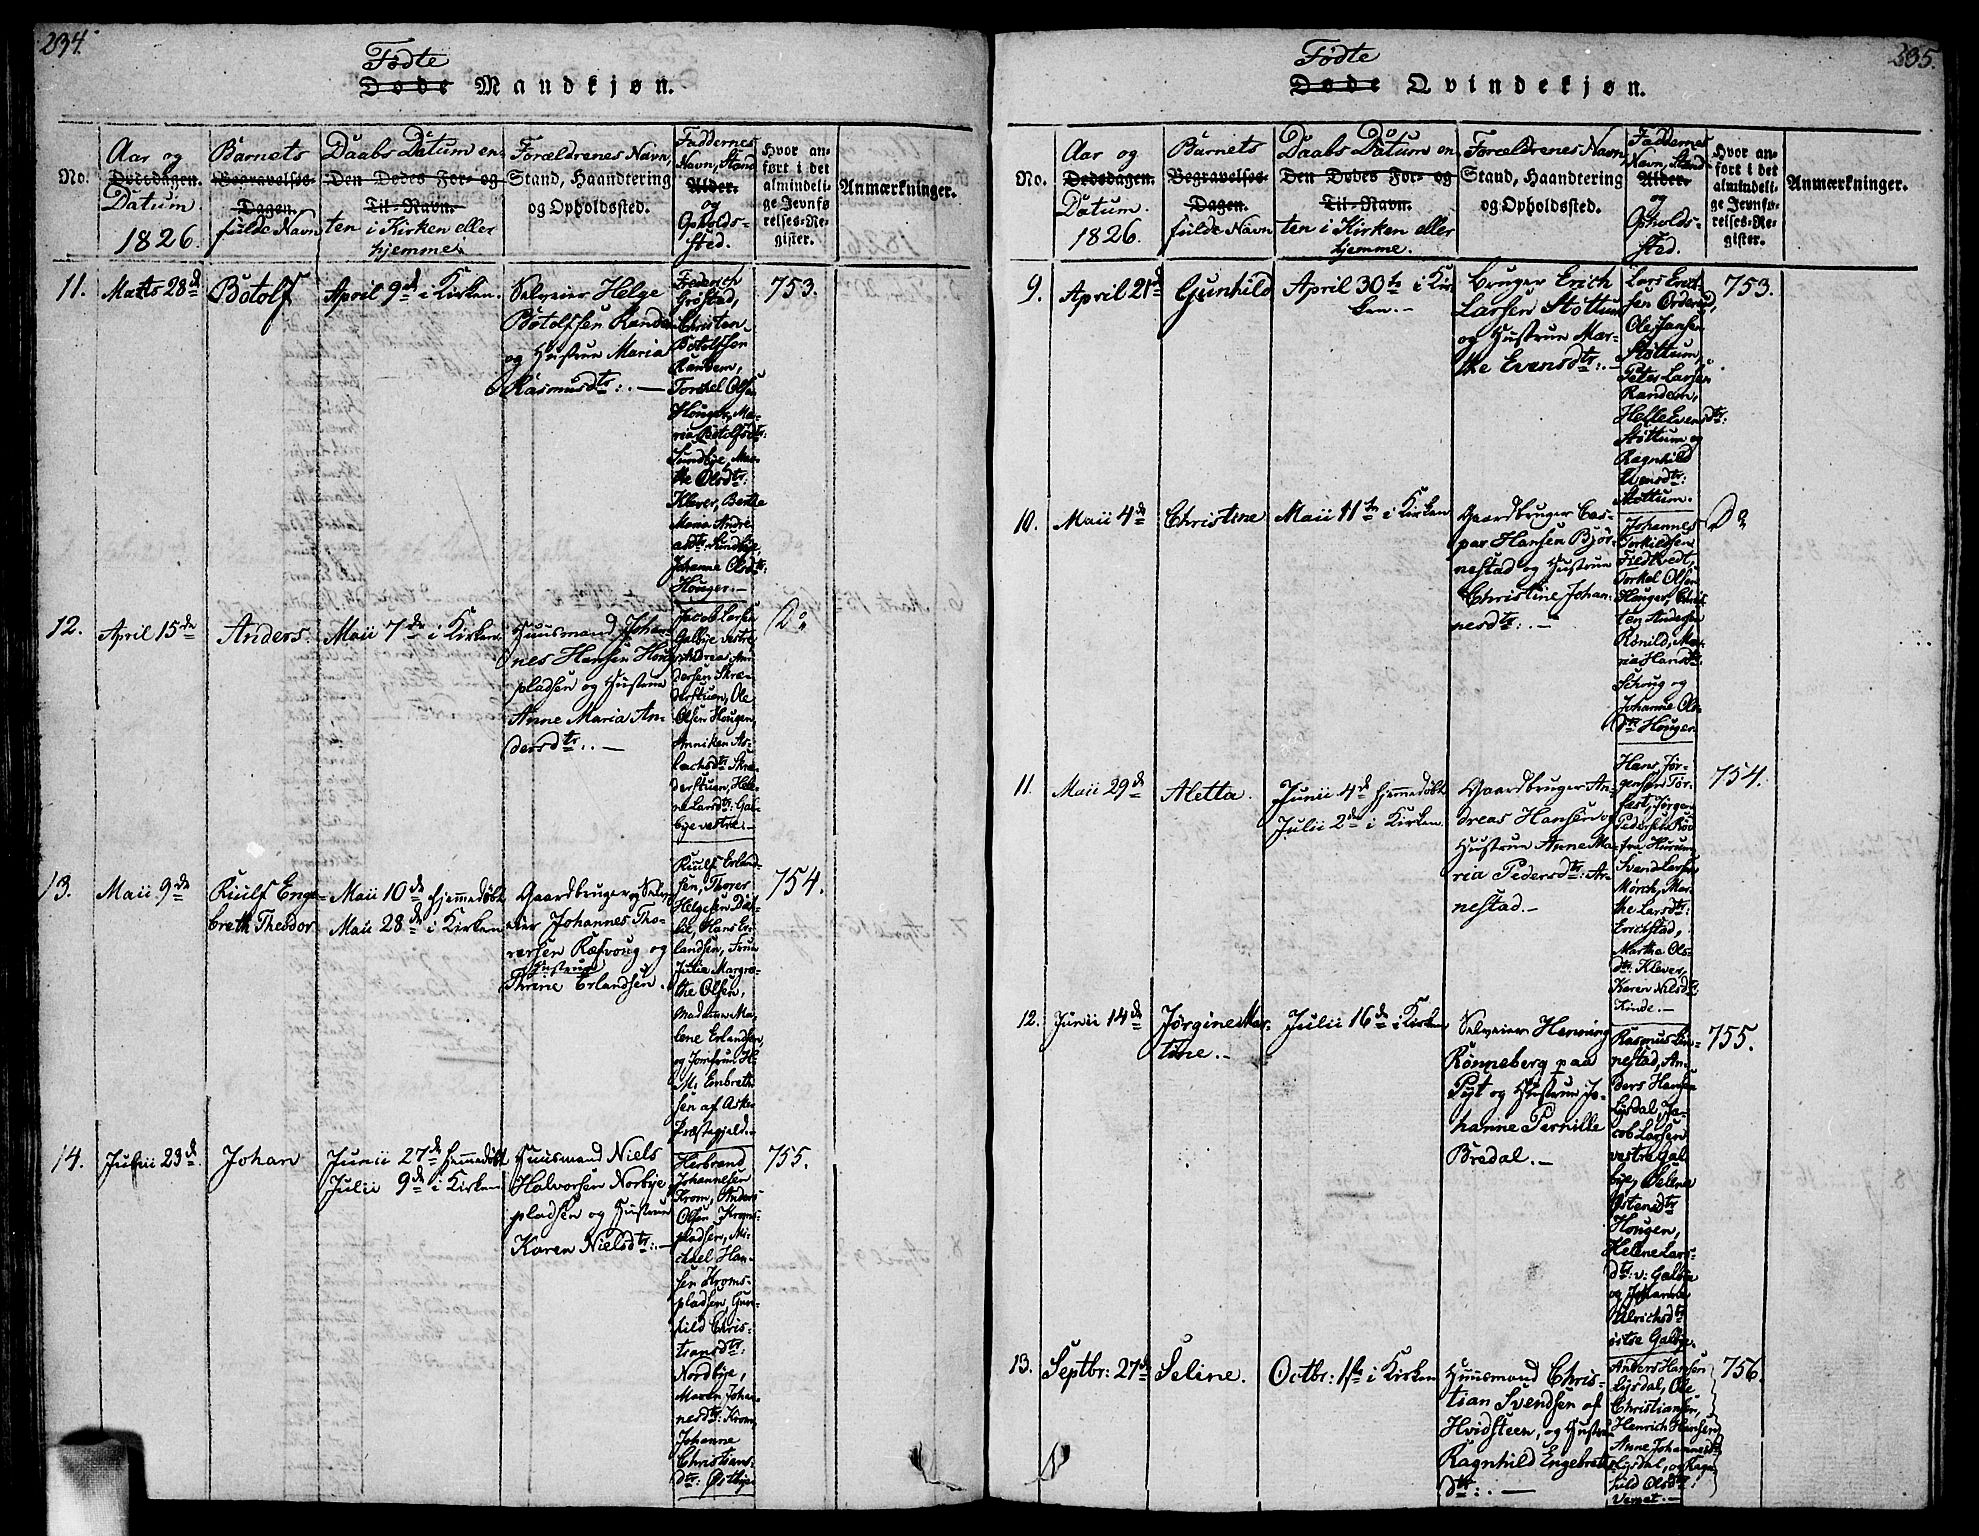 234.
Fødte
Døde Mandkjøn.
No.
Aar og
Dødsdagen.
Datum.
1826.
Barnets
Begravelses-
Dagen.
fulde Navn
Daabs Datum en-
Den Dødes For- og
Til-Navn.
ten i Kirken eller
hjemme.
Forældrenes Navn,
Stand, Haandtering
og Opholdssted.
Faddernes
Navn, Stand
Alder.
og
Opholds-
sted.
Hvor an-
ført i det
almindeli-
ge Jevnfø-
relses-Re-
gister.
Anmærkninger.
11.
Marts 28d
Botolf
April 9d i Kirken.
Selveier Helge
Botolfsen Randem
og Hustrue Maria
Rasmusdtr: . —
Frederich
Grøstad,
Christen
Botolfsen
Randem,
Torchel Olsen
Houger, Ma-
ria Botolfsdtr:
Sundbye, Mar-
the Olsdtr:
Klever, Berthe
Maria Andre-
asdtr: Sundbye,
Johanne Olsdtr:
Houger. —
753.
12.
April 15de
Anders.
Maii 7de i Kirken
Huusmand Johan-
nes Hansen Houg-
pladsen og Hustrue
Anne Maria An-
dersdtr: . —
Jacob Larsen
Galbye vestre,
Andreas An-
dersen Skræ-
derstuen, Ole
Olsen Hougen,
Anniken As-
lachsdtr Skræ-
derstuen, Hele-
ne Larsdtr: Gal-
bye vestre. —
Do
13.
Maii 9de
Riulf Enge-
breth Theodor
Maii 10de hjemmedøbt
Maii 28de i Kirken
Gaardbruger og Selv-
eier Johannes Tho-
rersen Ræfvoug og
Hustrue
Thrine Erlandsen.
Riulf Erland-
sen, Thorer
Helgesen Dæh-
lie, Hans Er-
landsen, Frue
Julia Margre-
the Olsen,
Madame Ma-
lene Erlandsen,
og Jomfrue H.
M. Embreth-
sen af Asker
Præstegjeld. —
754.
14.
Junii 23de
Johan
Junii 27de hjemmedøbt
Julii 9de i Kirken
Huusmand Niels
Halvorsen Norbye-
pladsen og Hustrue
Karen Nielsdtr: . —
Herbrand
Johannesen
Krom, Anders
Olsen Kroms-
pladsen, Mi-
chel Han-
sen Kroms-
pladsen, Gun-
hild Chris-
tiansdtr:
Nordbye,
Maren Johan-
nesdtr: Krom,
Johanne
Christians-
dtr: Østbye
755.
235.
Fødte
Døde Qvindekjøn.
No.
Aar og
Dødsdagen.
Datum.
1826.
Barnets
Begravelses-
Dagen.
fulde Navn
Daabs Datum en-
Den Dødes For- og
Til-Navn.
ten i Kirken eller
hjemme.
Forældrenes Navn
Stand, Haandtering
og Opholdssted.
Faddernes
Navn, Stand
Alder.
og
Opholds-
sted.
Hvor an-
ført i det
almindeli-
ge Jevnfø-
relses-Re-
gister.
Anmærkninger.
9.
April 21d
Gunhild
April 30te i Kir-
ken. —
Bruger Erich
Larsen Støttum
og Hustrue Mar-
the Evensdtr: . —
Lars Erich-
sen Orderud,
Ole Jansen
Støttum,
Peter Larsen
Randem,
Helle Evensdtr:
Støttum og
Ragnhild
Evensdtr:
Støttum.
753.
10.
Maii 4de
Christine
Maii 11te i Kirken
Gaardbruger Cas-
par Hansen Bjør-
nestad og Hustrue
Christine Johan-
nesdtr: . —
Johannes
Torkildsen
Fredtvedt,
Torkel Olsen
Houger, Chris-
ten Andersen
Rønild, Ma-
ria Hansdtr:
Schoug og
Johanne Ols-
dtr Houger.
Do
11.
Maii 29de
Aletta.
Junii 4de hjemmedøbt
Julii 2de i Kirken
Gaardbruger An-
dreas Hansen og
Hustrue Anne Ma-
ria Pedersdtr: Ar-
nestad. —
Hans Jør-
gensen Tor-
fæst, Jørgen
Pedersen Røe
fra Hurum,
Svend Larsen
Mørch, Mar-
the Larsdtr:
Erichstad,
Marthe Ols-
dtr: Klever,
Karen Nilsdtr:
Linde. —
754.
12.
Junii 14de
Jørgine Mar-
tine. —
Julii 16de i Kirken
Selveier Henning
Rønneberg paa
Pyt og Hustrue Jo-
hanne Pernille
Bredal. —
Rasmus Lin-
nestad, An-
ders Hansen
Lysdal, Ja-
cob Larsen
vestre Gal-
bye, Selene
Østensdtr
Hougen,
Helene Lars-
dtr: v: Galbye
og Johanne
Ulrichsdtr
østre Galbye.
755.
13.
Septbr: 27de
Seline.
Octbr: 1ste i Kirken
Huusmand Chris-
tian Svendsen af
Hvidsteen, og Hustrue
Ragnhild Engebrets-
dtr: . —
Anders Hansen
Lysdal, Ole
Christiansen,
Henrich Hansen
Anne Johannesdtr
Lysdal, og Ragn-
hild Olsdtr
756.